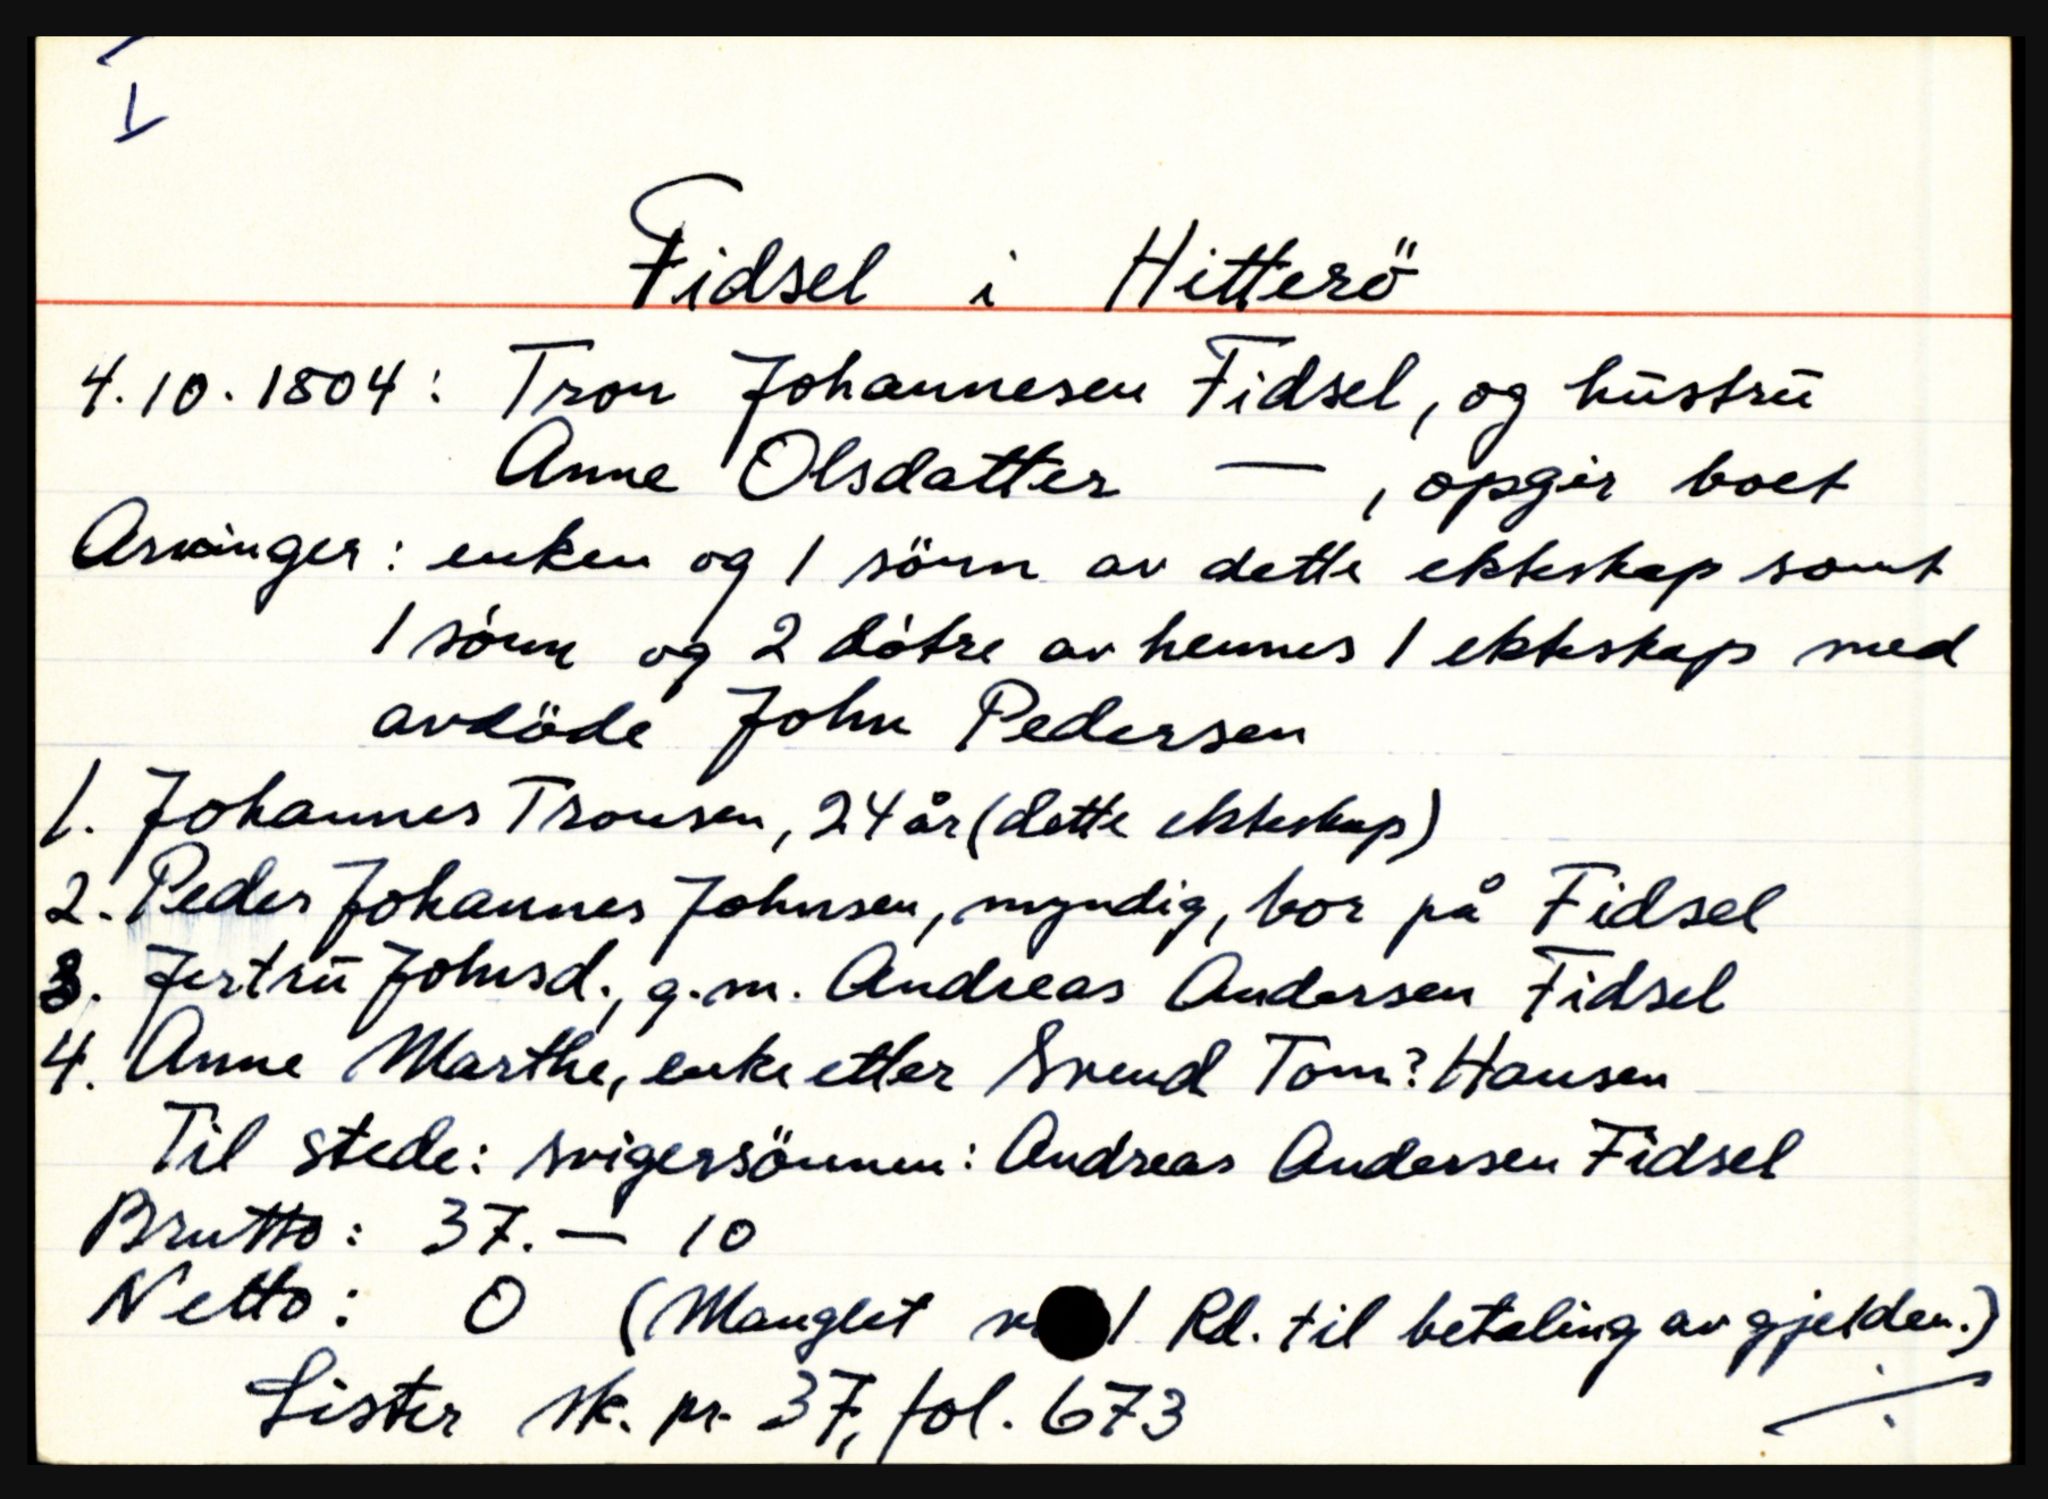 Fidsel i Hitterö
4.10.1804: Tron Johannesen Fidsel, og hustru
Anne Olsdatter —, opgir boet
Arvinger: enken og 1 sönn av dette ekteskap samt
1 sönn og 2 dötre av hennes 1 ekteskap med
avdöde John Pedersen
1. Johannes Tronsen, 24 år (dette ekteskap)
2. Peder Johannes Johnsen, myndig, bor på Fidsel
3. Jertru Johnsd., g.m. Andreas Andersen Fidsel
4. Anne Marthe, enke etter Svend Tom? Hansen
Til stede: svigersönnen: Andreas Andersen Fidsel
Brutto: 37.— 10
Netto: 0 (Manglet 1 Rd. til betaling av gjelden.)
Lister sk. pr. 37, fol. 673